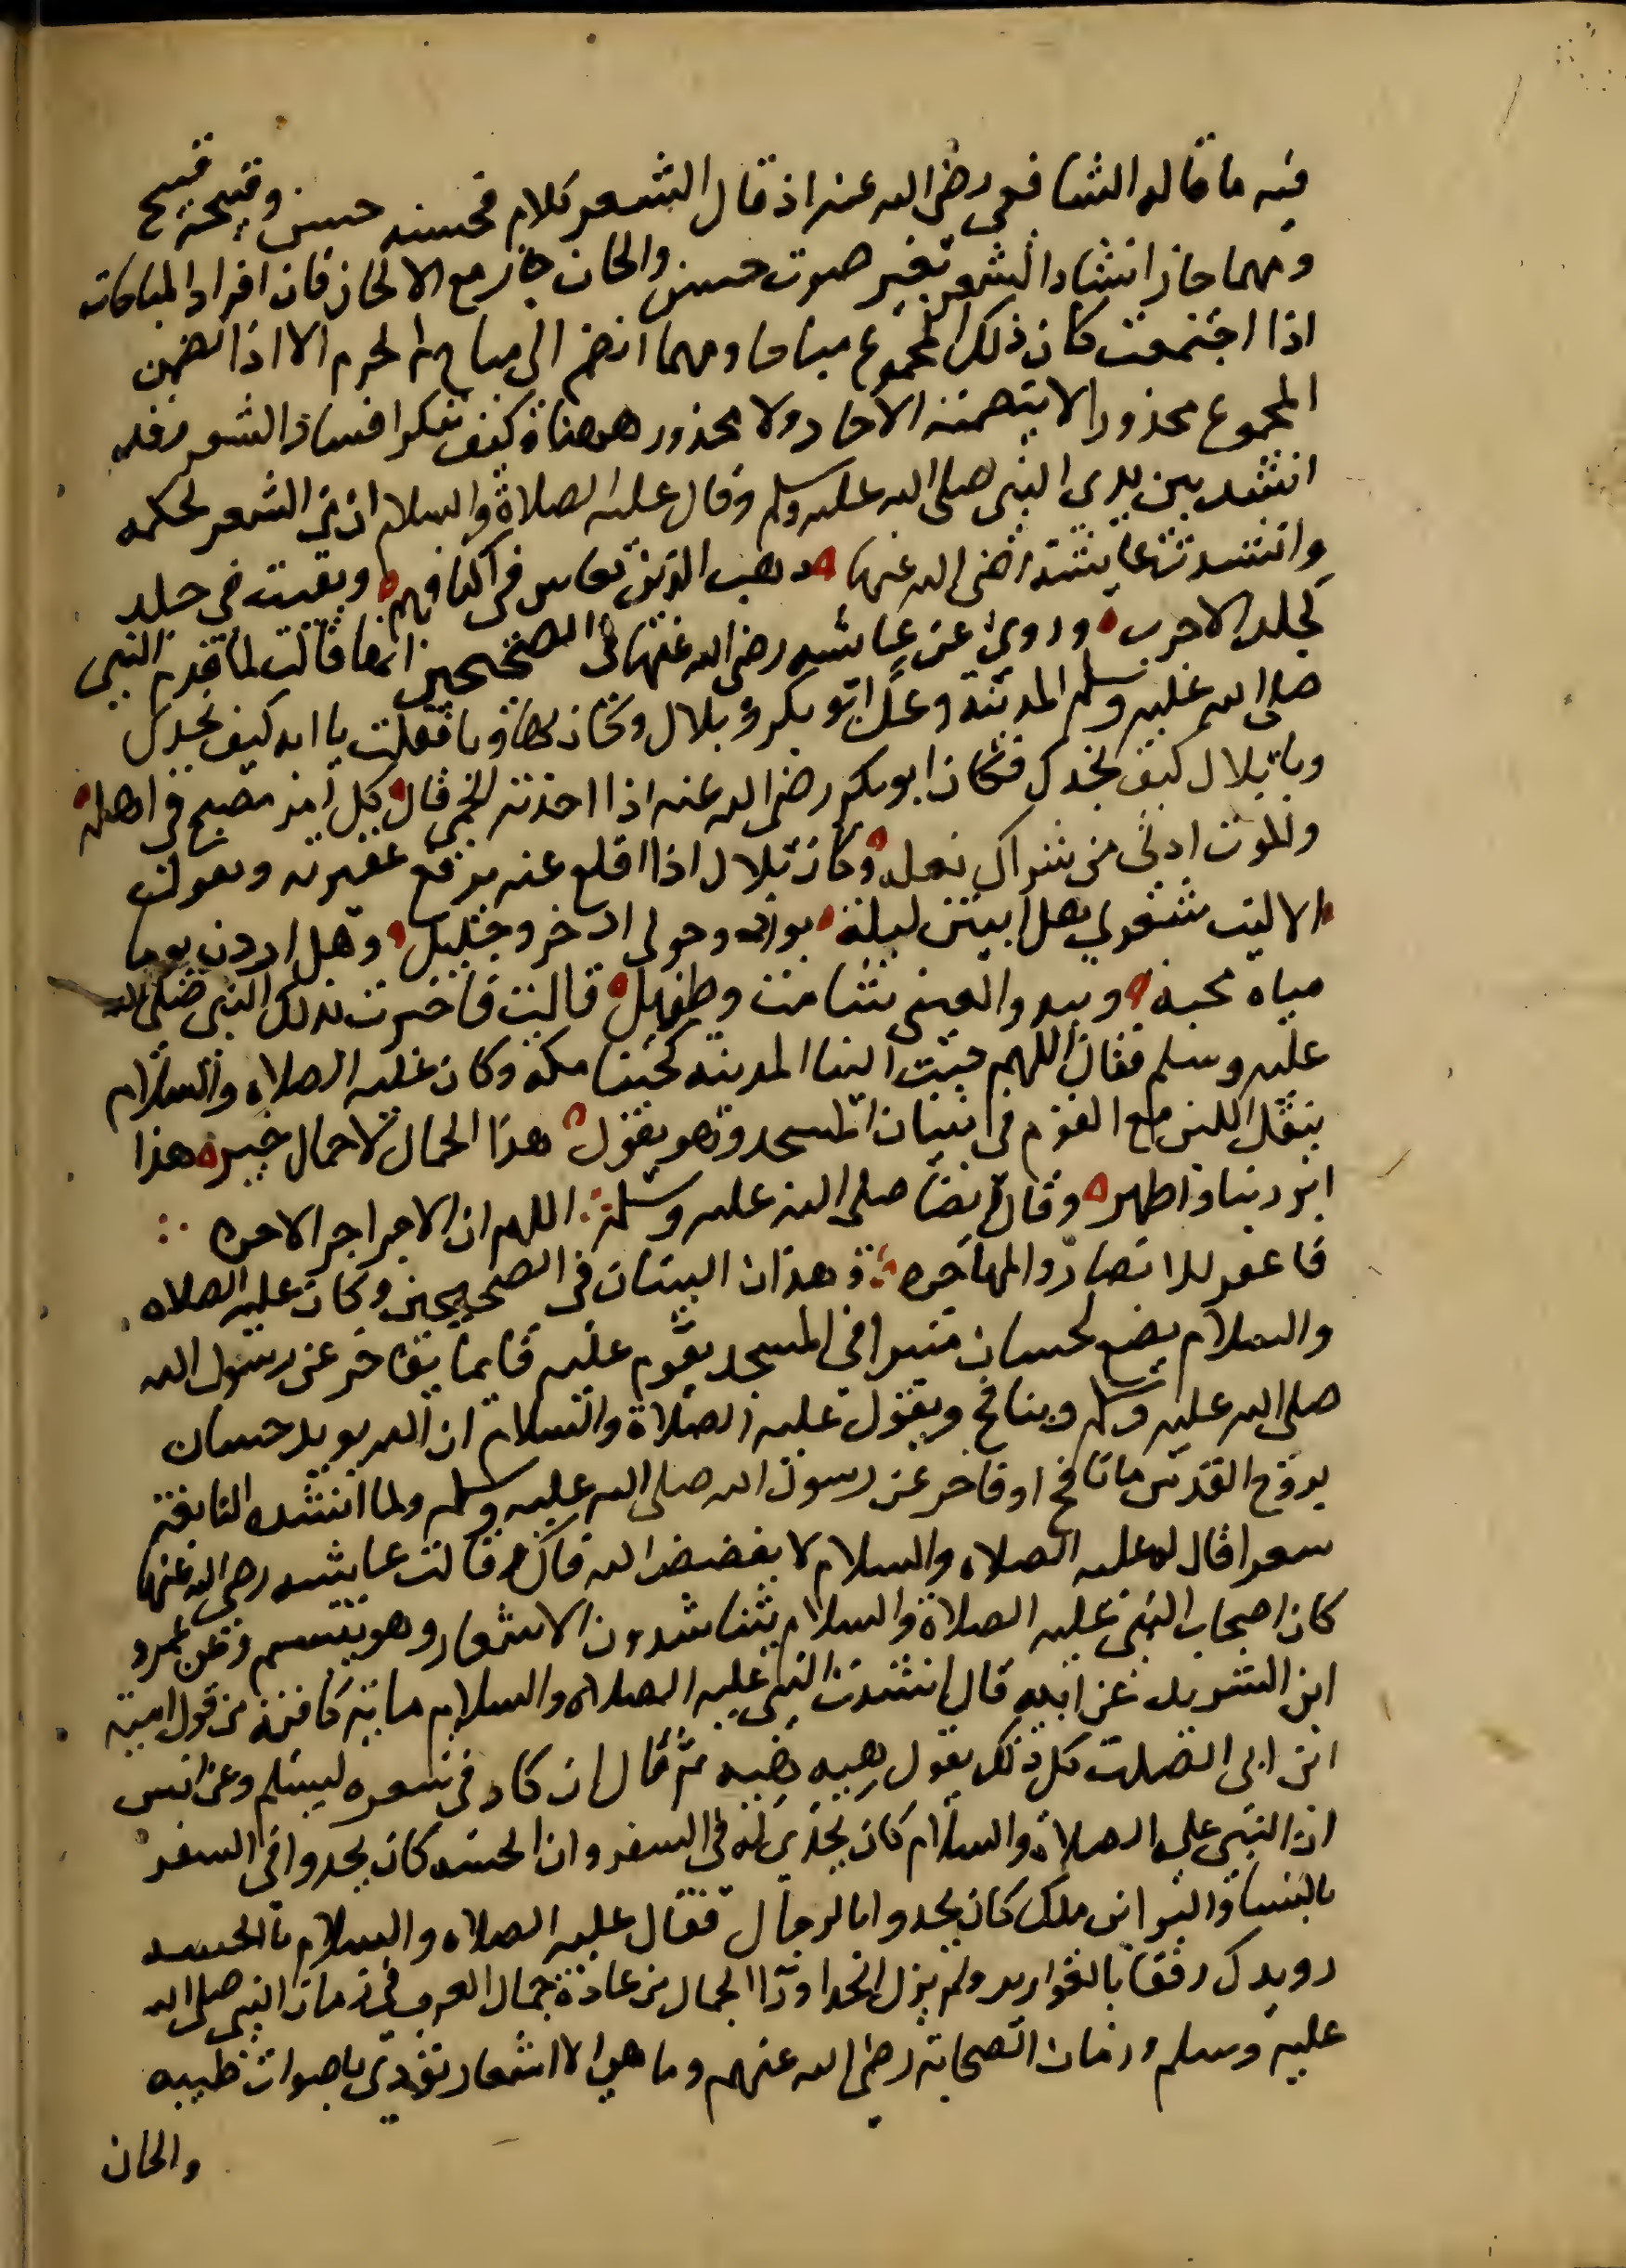 فيه ما قاله الشافعي رضي الله عنه اذ قال الشعر كلام فحسنه حسن وقبيحه قبيح
ومهما جاز انشاد الشعر بغير صوت حسن والحان جاز مع الالحان فان افراد المباحات
اذا اجتمعت كان ذلك المجموع مباحا ومهما انضم الى مباح لم يحرم الا اذا تضمن
المجموع محذورا لا يتضمنه الاحاد ولا محذور ههنا وكيف ينكر انشاد الشعر وقد
انشد بين يدي النبي صلى الله عليه وسلم وقال عليه الصلاة والسلام ان من الشعر لحكمه
وانشدت عايشة رضي الله عنها ذهب الذين يعاش في اكنافهم وبقيت في خلف
كجلد الاجرب وروي عن عايشه رضي الله عنها في الصحيحين انها قالت لما قدم النبي
صلى الله عليه وسلم المدينة وعك ابو بكر وبلال وكان بها وبا فقلت يا ابه كيف تجدك
ويا بلال كيف تجدك فكان ابو بكر رضي الله عنه اذا اخذته الحمى قال كل امرء مصبح في اهله
والموت ادنى من شراك نعله وكان بلال اذا اقلع عنه يرفع عقيرته ويقول
الا ليت شعري هل ابيتن ليلة بواد وحولي اذخر وجليل وهل اردن يوما
مياه مجنه وهل يبدون لي شامة وطفيل قالت فاخبرت بذلك النبي صلى الله
عليه وسلم فقال اللهم حبب الينا المدينة كحبنا مكه وكان عليه الصلاه والسلام
ينقل اللبن مع القوم في بنيان المسجد وهو يقول هذا الحمال لا حمال خيبر هذا
ابر ربنا واطهر وقال ايضا صلى الله عليه وسلم اللهم ان الاجر اجر الاخره
فاغفر للانصار والمهاجره وهذان البيتان في الصحيحين وكان عليه الصلاه
والسلام يضع لحسان منبرا في المسجد يقوم عليه قايما يفاخر عن رسول الله
صلى الله عليه وسلم وينافح ويقول عليه الصلاة والسلام ان الله يويد حسان
بروح القدس ما نافح او فاخر عن رسول الله صلى الله عليه وسلم ولما انشده النابغة
شعرا قال له عليه الصلاه والسلام لا يفضض الله فاك وقالت عايشه رضي الله عنها
كان اصحاب النبي عليه الصلاة والسلام يتناشدون الاشعار وهو يتبسم وعن عمرو
ابن الشريد عن ابيه قال انشدت النبي عليه الصلاه والسلام ماية قافية من قول امية
ابن ابي الصلت كل ذلك يقول هيه هيه ثم قال ان كاد في شعره ليسلم وعن انس
ان النبي عليه الصلاة والسلام كان يحدى له في السفر وان انجشه كان يحدوا في السفر
بالنسا والبرا ابن ملك كان يحدوا بالرجال فقال عليه الصلاه والسلام يا انجشه
رويدك رفقا بالقوارير ولم يزل الحدا ورا الجمال من عادة جمال العرب في زمان النبي صلى الله
عليه وسلم وزمان الصحابة رضي الله عنهم وما هي الا اشعار تؤدى باصوات طيبه
والحان